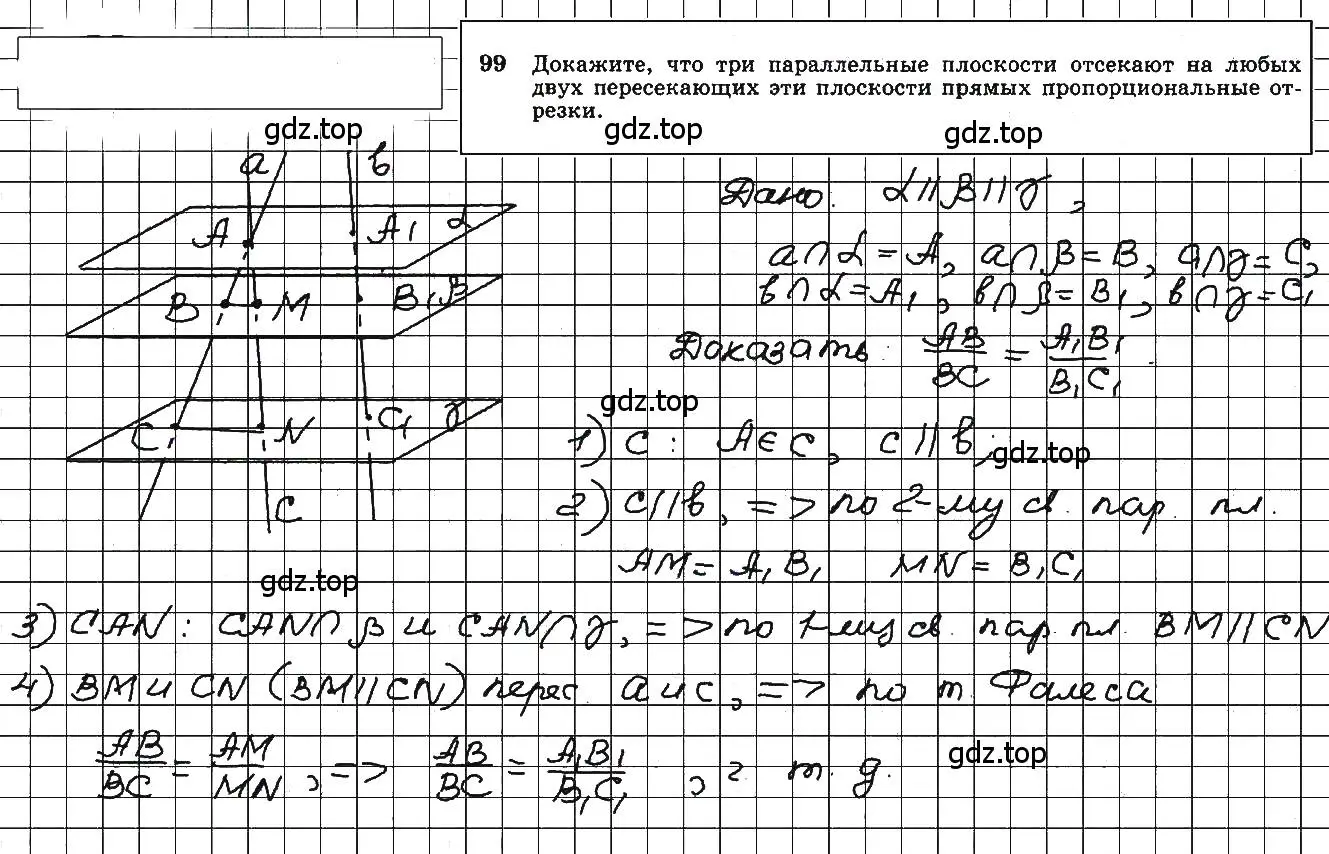 99 Докажите, что три параллельные плоскости отсекают на любых
двух пересекающих эти плоскости прямых пропорциональные от-
резки.
gdz.top gdz.top gdz.top
a в
A A₁ α
B M B₁ β
C N C₁ γ
c
Дано: α∥β∥γ,
a∩α=A, a∩β=B, a∩γ=C,
в∩α=A₁, в∩β=B₁, в∩γ=C₁
Доказать: AB/BC = A₁B₁/B₁C₁.
gdz.top
1) c: A∈c, c∥в;
gdz.top
2) c∥в, => по 2-му св. пар. пл.
AM=A₁B₁ MN=B₁C₁
gdz.top
3) CAN: CAN∩β и CAN∩γ, => по 1-му св. пар. пл. BM∥CN
4) BM и CN (BM∥CN) перес. a и c, => по т. Фалеса
AB/BC = AM/MN, => AB/BC = A₁B₁/B₁C₁, ч. т. д.
gdz.top